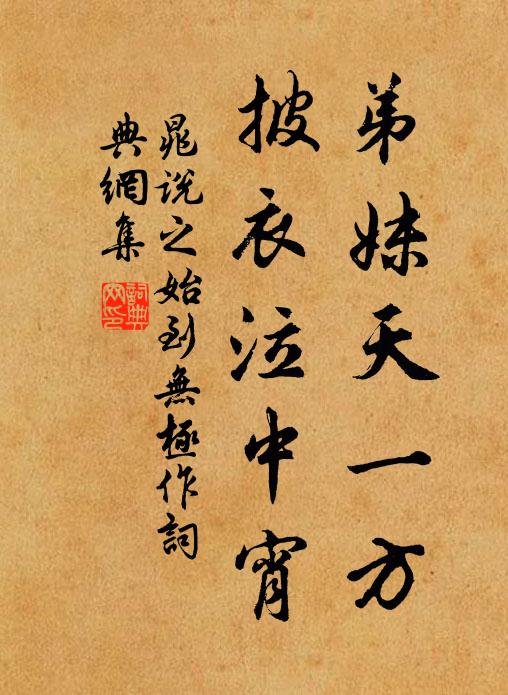 弟妹天一方
披衣泣中宵
晁說之始到無極作詞
典網集
詞典網印